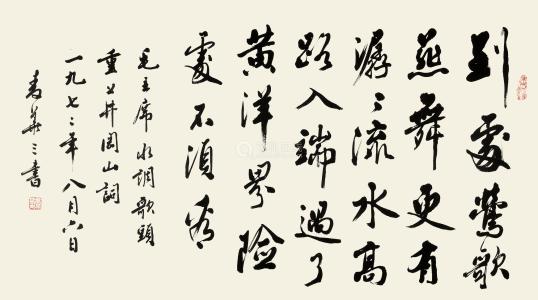 到處鶯歌
燕舞更有
潺〻流水高
路入端過了
黄洋界險
處不須看
毛主席水調歌頭
重上井岡山詞
一九七〻年八月六日
華三書